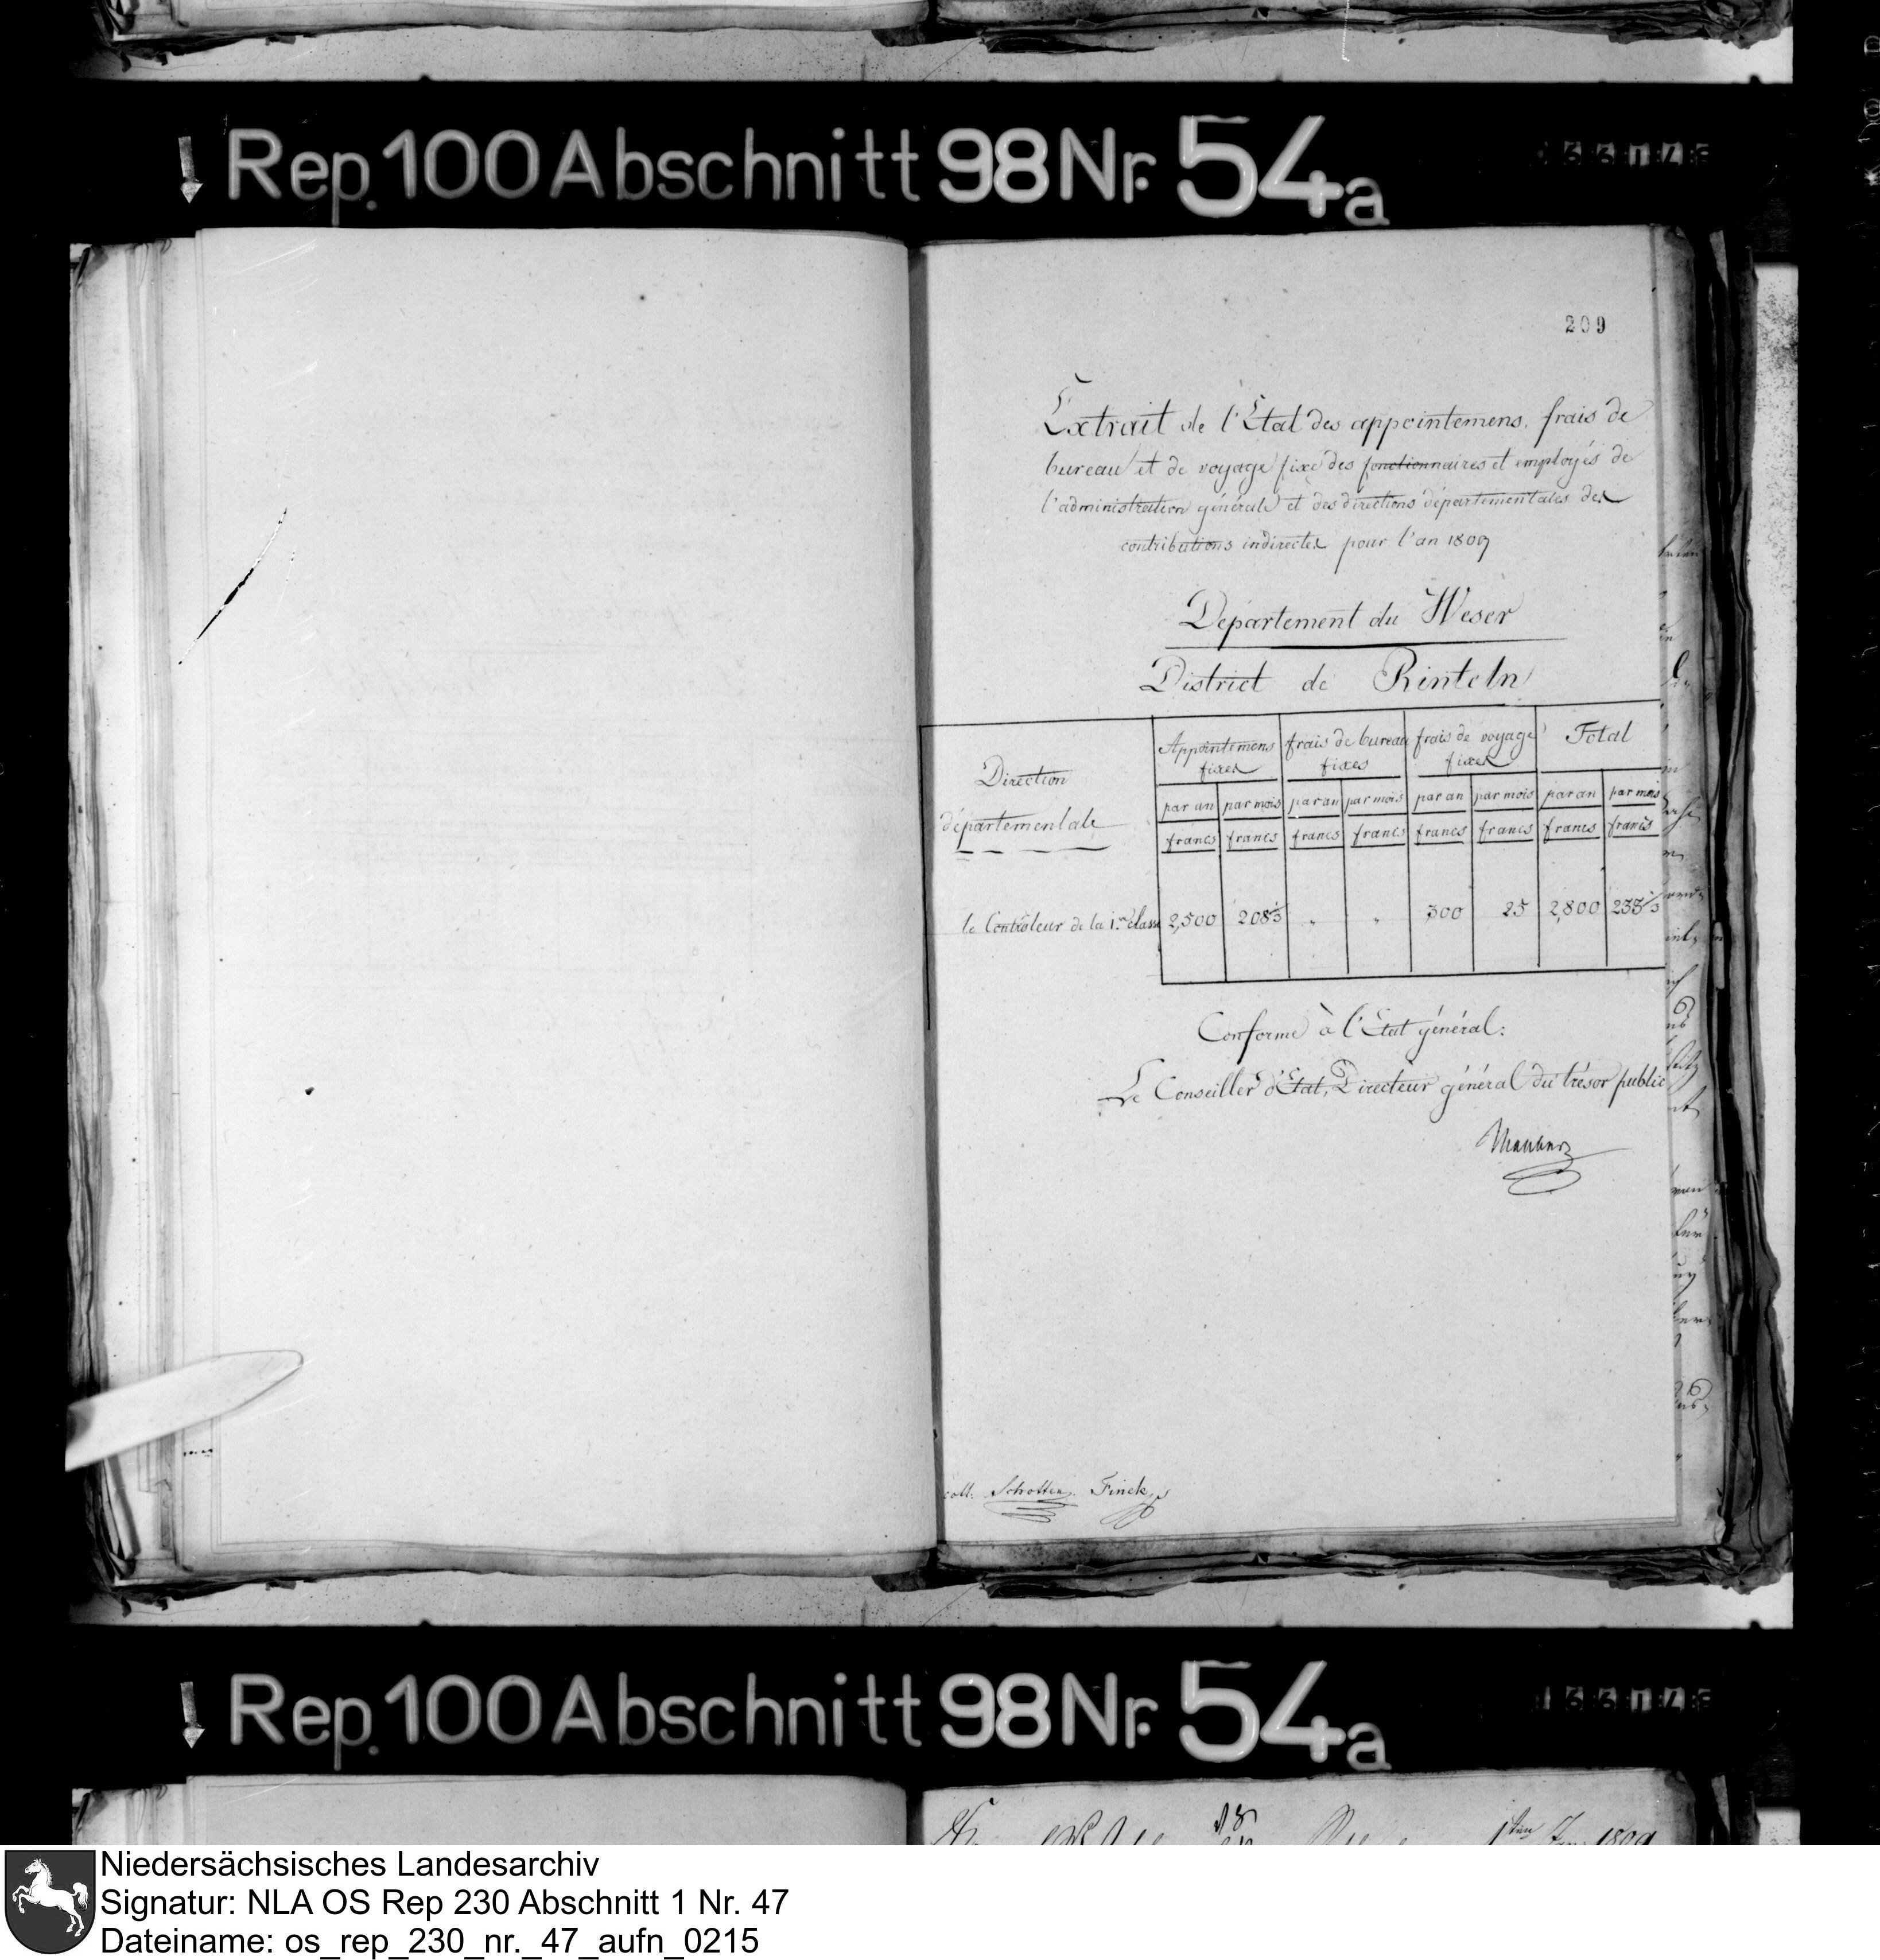 Rep. 100 Abschnitt 98 Nr. 54a
209
Extrait de l'Etat des appointemens, frais de
bureau et de voyage fixe des fonctionnaires et employés de
l'administration générale et des directions départementales des
contributions indirectes pour l'an 1809
Département du Weser
District de Rinteln
Direction
départementale
Appointemens fixes frais de bureau fixes frais de voyage fixes Total
par an par mois par an par mois par an par mois par an par mois
francs francs francs francs francs francs francs francs
le Contrôleur de la 1re classe 2,500 208⅓ " " 300 25 2,800 233⅓
Conforme à l'Etat général:
Le Conseiller d'Etat, Directeur général du trésor public
coll. Schotten. Finck
Rep. 100 Abschnitt 98 Nr. 54a
Niedersächsisches Landesarchiv
Signatur: NLA OS Rep 230 Abschnitt 1 Nr. 47
Dateiname: os_rep_230_nr._47_aufn_0215